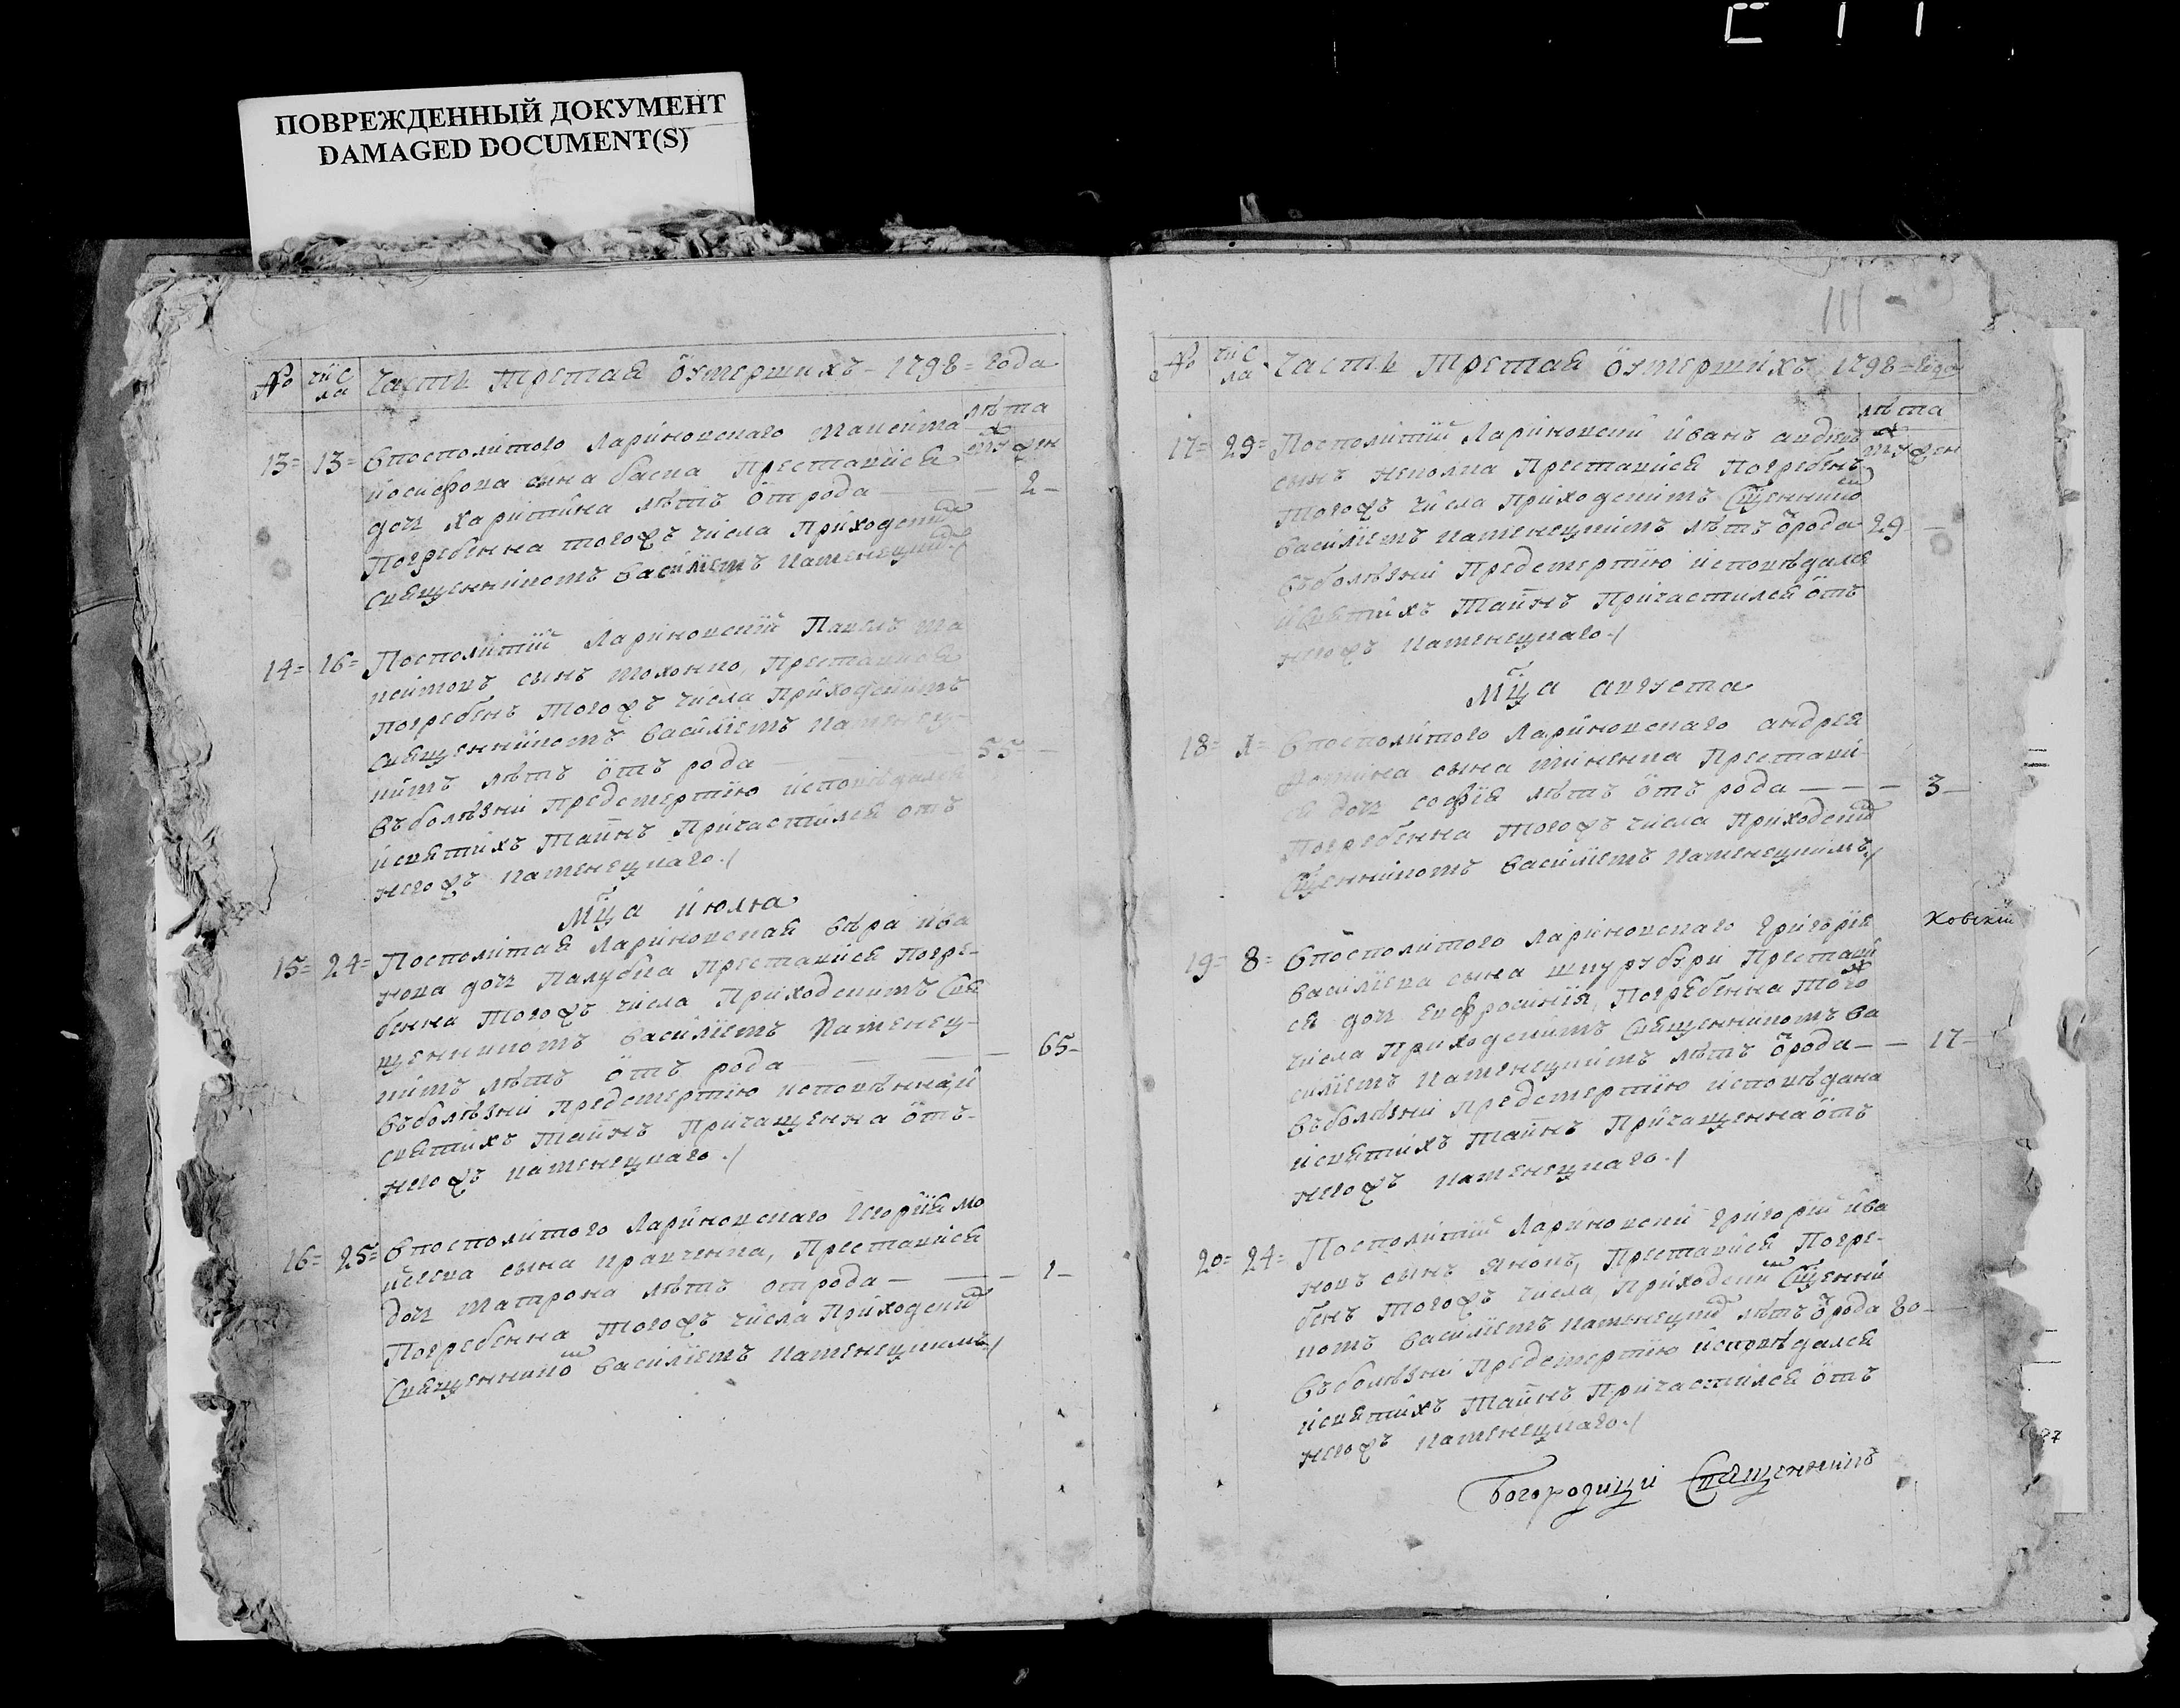 ПОВРЕЖДЕННЫЙ ДОКУМЕНТ
DAMAGED DOCUMENT(S)
№ числа часть третая ѿумершихъ - 1798 = года
лѣта
муж жен
13 = 13 = Упосполитого Лариновскаго
иосифова сына баска Преставися
дочь харитина лѣтъ ѿт рода — 2 -
Погребенна тогожъ числа Приходским
священникомъ василиемъ каменецким
14 = 16 = Посполитий Лариновский Павелъ
сынъ Преставися
погребенъ тогожъ числа Приходскимъ
священникомъ василиемъ каменец-
кимъ лѣтъ ѿтъ рода — 55 -
въболѣзни предсмертию исповѣдался
исвятихъ таинъ Причастился отъ
негожъ каменецкаго ./
Мца июля
15 = 24 = Посполитая Лариновская вѣра ива
нова дочь Палубка Преставися Погре-
бенна тогожъ числа Приходскимъ Свя
щенникомъ василиемъ Каменец-
кимъ лѣтъ ѿтъ рода — 65 -
въболѣзни предсмертию
святихъ таинъ Причащенна ѿтъ-
негожъ каменецкаго ./
16 = 25 = Упосполитого Лариновскаго мо
исеева сына кравченка, Преставися
дочь матрона лѣтъ отрода — 1 -
Погребенна тогожъ числа Приходским
Священником василиемъ каменецкимъ /
111
№ числа часть третая ѿумершихъ 1798 = года
лѣта
муж жен
17 = 29 = Посполитий Лариновский иванъ
сынъ Преставися Погребенъ
тогожъ числа Приходскимъ Сщенником
василиемъ каменецкимъ лѣтъ ѿ рода 29 —
въболѣзни Предсмертию исповѣдался
исвятихъ таинъ Причастился ѿтъ
негожъ каменецкаго ./
Мца августа
18 = 1 = Упосполитого Лариновскаго андрея
сына Престави-
ся дочь софия лѣтъ ѿтъ рода — — — 3 —
Погребенна тогожъ числа Приходским
Сщенникомъ василиемъ каменецкимъ /
ховский
19 = 8 = Упосполитого Лариновскаго григория
василиева сына Престави
ся дочь евфросиния, Погребенна того
числа Приходскимъ Священникомъ ва
силиемъ каменецкимъ лѣтъ ѿ рода — — 17 -
въболѣзни предсмертию исповѣдана
исвятихъ таинъ Причащенна ѿтъ
негожъ каменецкаго ./
20 = 24 = Посполитий Лариновский григорий ива
новъ сынъ Преставися Погре-
бенъ тогожъ числа Приходским Сщенни
комъ василиемъ каменецким лѣтъ ѿ рода 80 —
въболѣзни Предсмертию исповѣдался
исвятихъ таинъ Причастился ѿтъ
негожъ каменецкаго ./
Богородици Священникъ